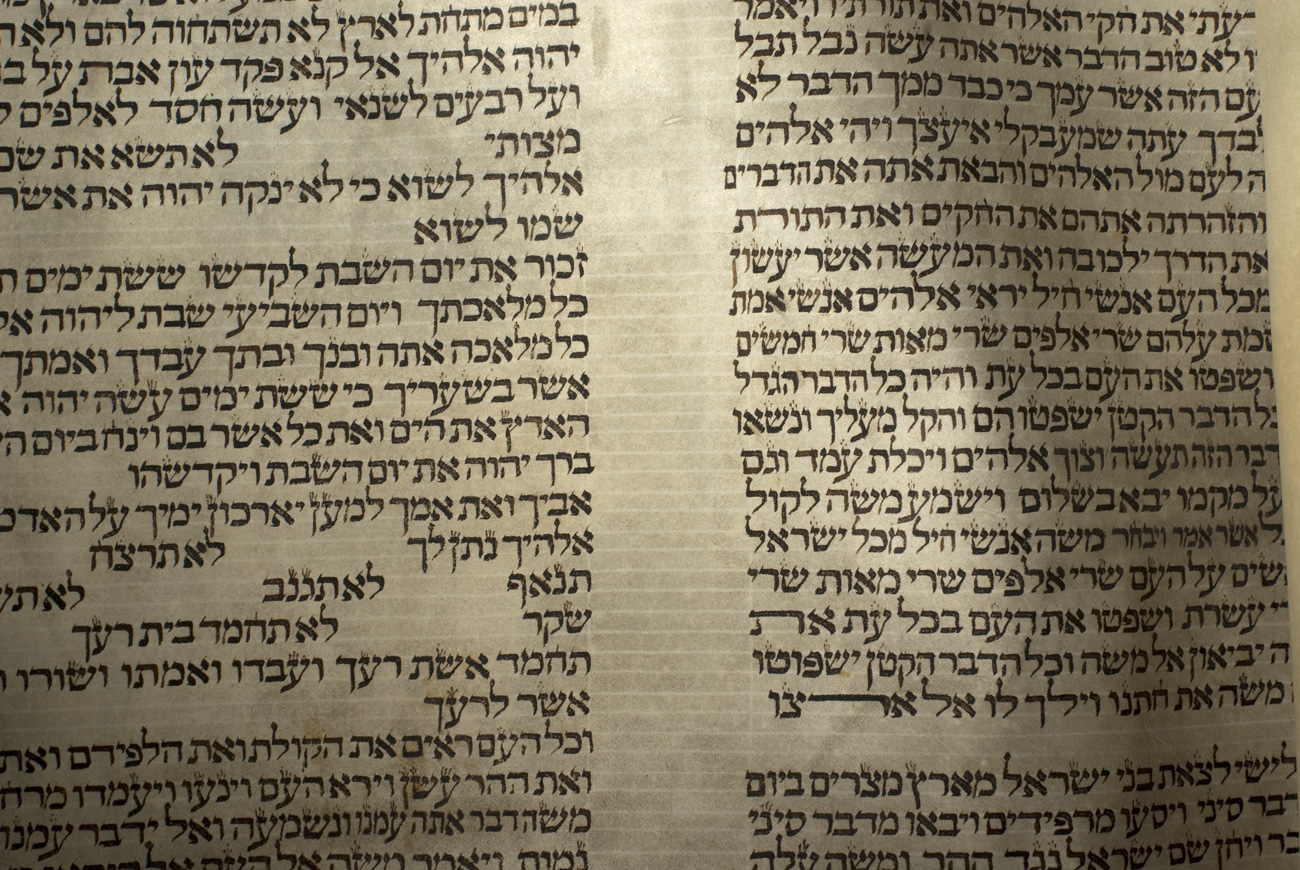 דעתי את חקי האלהים ואת תורתיו ויאמר
ו לא טוב הדבר אשר אתה עשה נבל תבל
עם הזה אשר עמך כי כבד ממך הדבר לא
לבדך עתה שמע בקלי איעצך ויהי אלהים
ה לעם מול האלהים והבאת אתה את הדברים
והזהרתה אתהם את החקים ואת התורת
את הדרך ילכו בה ואת המעשה אשר יעשון
מכל העם אנשי חיל יראי אלהים אנשי אמת
שמת עלהם שרי אלפים שרי מאות שרי חמשים
ושפטו את העם בכל עת והיה כל הדבר הגדל
כל הדבר הקטן ישפטו הם והקל מעליך ונשאו
דבר הזה תעשה וצוך אלהים ויכלת עמד וגם
על מקמו יבא בשלום וישמע משה לקול
כל אשר אמר ויבחר משה אנשי חיל מכל ישראל
אשים על העם שרי אלפים שרי מאות שרי
רי עשרת ושפטו את העם בכל עת את
ה יביאון אל משה וכל הדבר הקטן ישפוטו
משה את חתנו וילך לו אל ארצו
לישי לצאת בני ישראל מארץ מצרים ביום
דבר סיני ויסעו מרפידים ויבאו מדבר סיני
בר ויחן שם ישראל נגד ההר ומשה עלה
במים מתחת לארץ לא תשתחוה להם ולא
יהוה אלהיך אל קנא פקד עון אבת על
ועל רבעים לשנאי ועשה חסד לאלפים
מצותי לא תשא את שם
אלהיך לשוא כי לא ינקה יהוה את אשר
שמו לשוא
זכור את יום השבת לקדשו ששת ימים
כל מלאכתך ויום השביעי שבת ליהוה
כל מלאכה אתה ובנך ובתך עבדך ואמתך
אשר בשעריך כי ששת ימים עשה יהוה
הארץ את הים ואת כל אשר בם וינח ביום
ברך יהוה את יום השבת ויקדשהו
אביך ואת אמך למען יארכון ימיך על האדמ
אלהיך נתן לך לא תרצח
תנאף לא תגנב לא תע
שקר לא תחמד בית רעך
תחמד אשת רעך ועבדו ואמתו ושורו
אשר לרעך
וכל העם ראים את הקולת ואת הלפידם ואת
ואת ההר עשן וירא העם וינעו ויעמדו מרח
משה דבר אתה עמנו ונשמעה ואל ידבר עמנו
נמות ויאמר משה אל העם אל